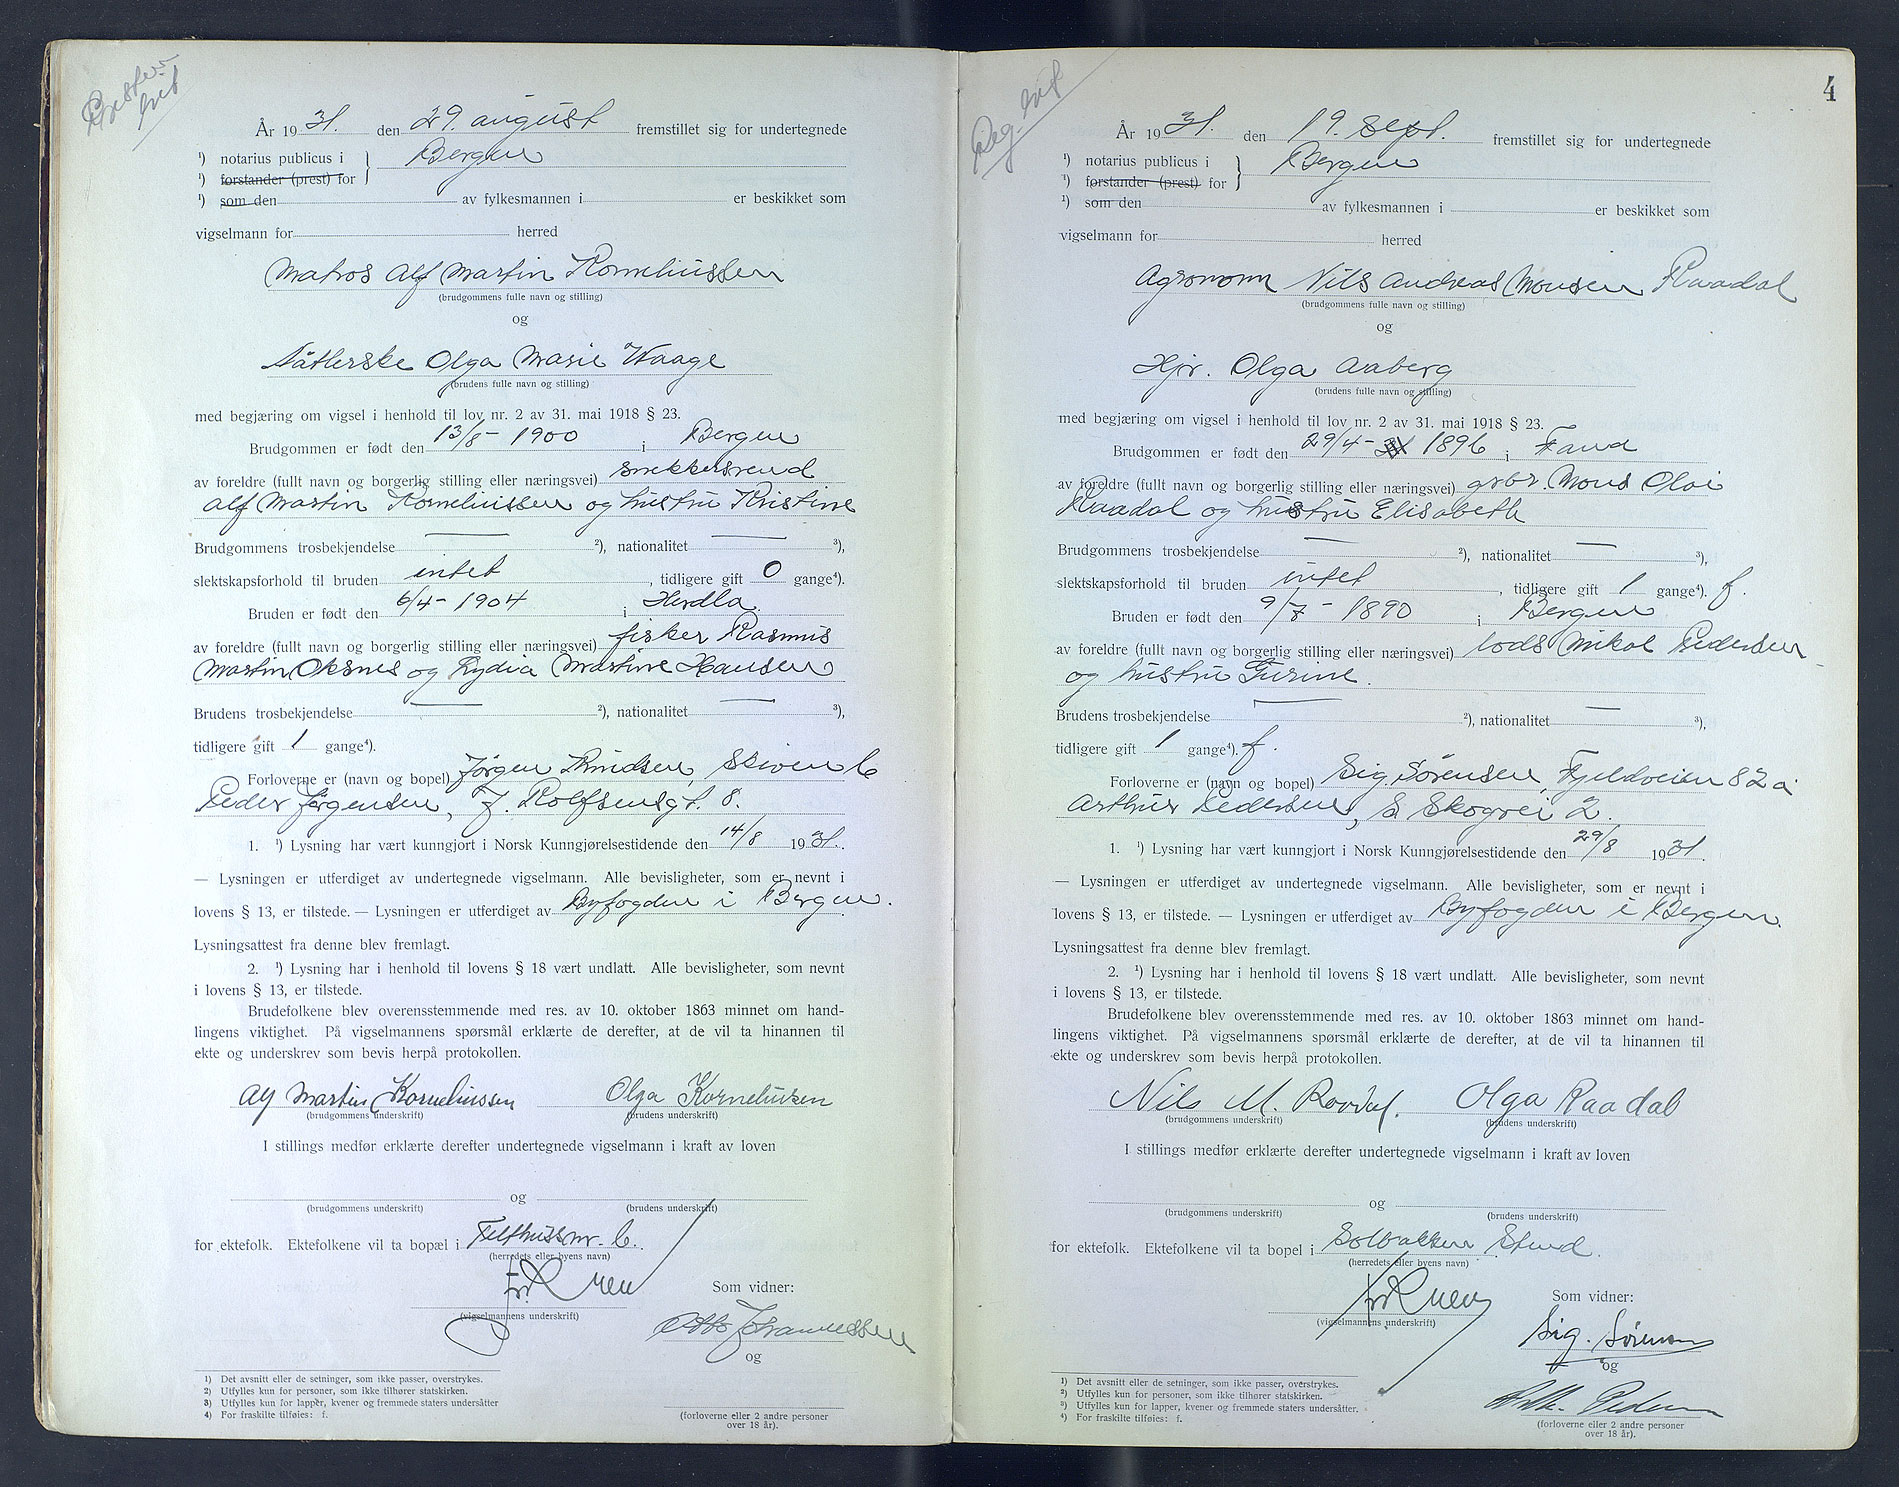 År 19 31. den 29. august fremstillet sig for undertegnede
¹) notarius publicus i } Bergen
¹) forstander (prest) for
¹) som den av fylkesmannen i er beskikket som
vigselmann for herred
Matros Alf Martin Korneliussen
(brudgommens fulle navn og stilling)
og
Olga Marie Waage
(brudens fulle navn og stilling)
med begjæring om vigsel i henhold til lov nr. 2 av 31. mai 1918 § 23.
Brudgommen er født den 13/8 - 1900 i Bergen
av foreldre (fullt navn og borgerlig stilling eller næringsvei) snekkersvend
Alf Martin Korneliussen og hustru Kristine
Brudgommens trosbekjendelse — ²), nationalitet — ³),
slektskapsforhold til bruden intet, tidligere gift 0 gange⁴).
Bruden er født den 6/4 - 1904 i Herdla.
av foreldre (fullt navn og borgerlig stilling eller næringsvei) fisker Rasmus
Martin Oksnes og Lydia Martine Hansen
Brudens trosbekjendelse — ²), nationalitet — ³),
tidligere gift 1 gange⁴).
Forloverne er (navn og bopel) Jørgen Knudsen, Skiven 6
Peder Jørgensen, J. Rolfsensgt. 8.
1. ¹) Lysning har vært kunngjort i Norsk Kunngjørelsestidende den 14/8 19 31.
— Lysningen er utferdiget av undertegnede vigselmann. Alle bevisligheter, som er nevnt i
lovens § 13, er tilstede. — Lysningen er utferdiget av Byfogden i Bergen.
Lysningsattest fra denne blev fremlagt.
2. ¹) Lysning har i henhold til lovens § 18 vært undlatt. Alle bevisligheter, som nevnt
i lovens § 13, er tilstede.
Brudefolkene blev overensstemmende med res. av 10. oktober 1863 minnet om hand-
lingens viktighet. På vigselmannens spørsmål erklærte de derefter, at de vil ta hinannen til
ekte og underskrev som bevis herpå protokollen.
Alf Martin Korneliussen Olga Korneliussen
(brudgommens underskrift) (brudens underskrift)
I stillings medfør erklærte derefter undertegnede vigselmann i kraft av loven
og
(brudgommens underskrift) (brudens underskrift)
for ektefolk. Ektefolkene vil ta bopæl i
(herredets eller byens navn)
Som vidner:
(vigselmannens underskrift)
Otto Johannessen
og
1) Det avsnitt eller de setninger, som ikke passer, overstrykes.
2) Utfylles kun for personer, som ikke tilhører statskirken.
3) Utfylles kun for lapper, kvener og fremmede staters undersåtter
4) For fraskilte tilføies: f.
(forloverne eller 2 andre personer
over 18 år).
4
År 19 31. den 19. sept. fremstillet sig for undertegnede
¹) notarius publicus i } Bergen
¹) forstander (prest) for
¹) som den av fylkesmannen i er beskikket som
vigselmann for herred
Agronom Nils Andreas Monsen Raadal
(brudgommens fulle navn og stilling)
og
Hjr. Olga Aaberg
(brudens fulle navn og stilling)
med begjæring om vigsel i henhold til lov nr. 2 av 31. mai 1918 § 23.
Brudgommen er født den 29/4 - 1896 i Fana
av foreldre (fullt navn og borgerlig stilling eller næringsvei) gbr. Mons Olai
Raadal og hustru Elisabeth
Brudgommens trosbekjendelse — ²), nationalitet — ³),
slektskapsforhold til bruden intet, tidligere gift 1 gange⁴). f.
Bruden er født den 9/7 - 1890 i Bergen
av foreldre (fullt navn og borgerlig stilling eller næringsvei) lods Mikal Pedersen
og hustru Gurine.
Brudens trosbekjendelse — ²), nationalitet — ³),
tidligere gift 1 gange⁴). f.
Forloverne er (navn og bopel) Sig. Sørensen, Fjeldveien 82 a
Arthur Pedersen, S. Skogvei 2.
1. ¹) Lysning har vært kunngjort i Norsk Kunngjørelsestidende den 29/8 19 31.
— Lysningen er utferdiget av undertegnede vigselmann. Alle bevisligheter, som er nevnt i
lovens § 13, er tilstede. — Lysningen er utferdiget av Byfogden i Bergen.
Lysningsattest fra denne blev fremlagt.
2. ¹) Lysning har i henhold til lovens § 18 vært undlatt. Alle bevisligheter, som nevnt
i lovens § 13, er tilstede.
Brudefolkene blev overensstemmende med res. av 10. oktober 1863 minnet om hand-
lingens viktighet. På vigselmannens spørsmål erklærte de derefter, at de vil ta hinannen til
ekte og underskrev som bevis herpå protokollen.
Nils M. Raadal. Olga Raadal
(brudgommens underskrift) (brudens underskrift)
I stillings medfør erklærte derefter undertegnede vigselmann i kraft av loven
og
(brudgommens underskrift) (brudens underskrift)
for ektefolk. Ektefolkene vil ta bopel i Solbakken
(herredets eller byens navn)
Som vidner:
(vigselmannens underskrift)
Sig. Sørensen
og
1) Det avsnitt eller de setninger, som ikke passer, overstrykes.
2) Utfylles kun for personer, som ikke tilhører statskirken.
3) Utfylles kun for lapper, kvener og fremmede staters undersåtter.
4) For fraskilte tilføies: f.
(forloverne eller 2 andre personer
over 18 år).